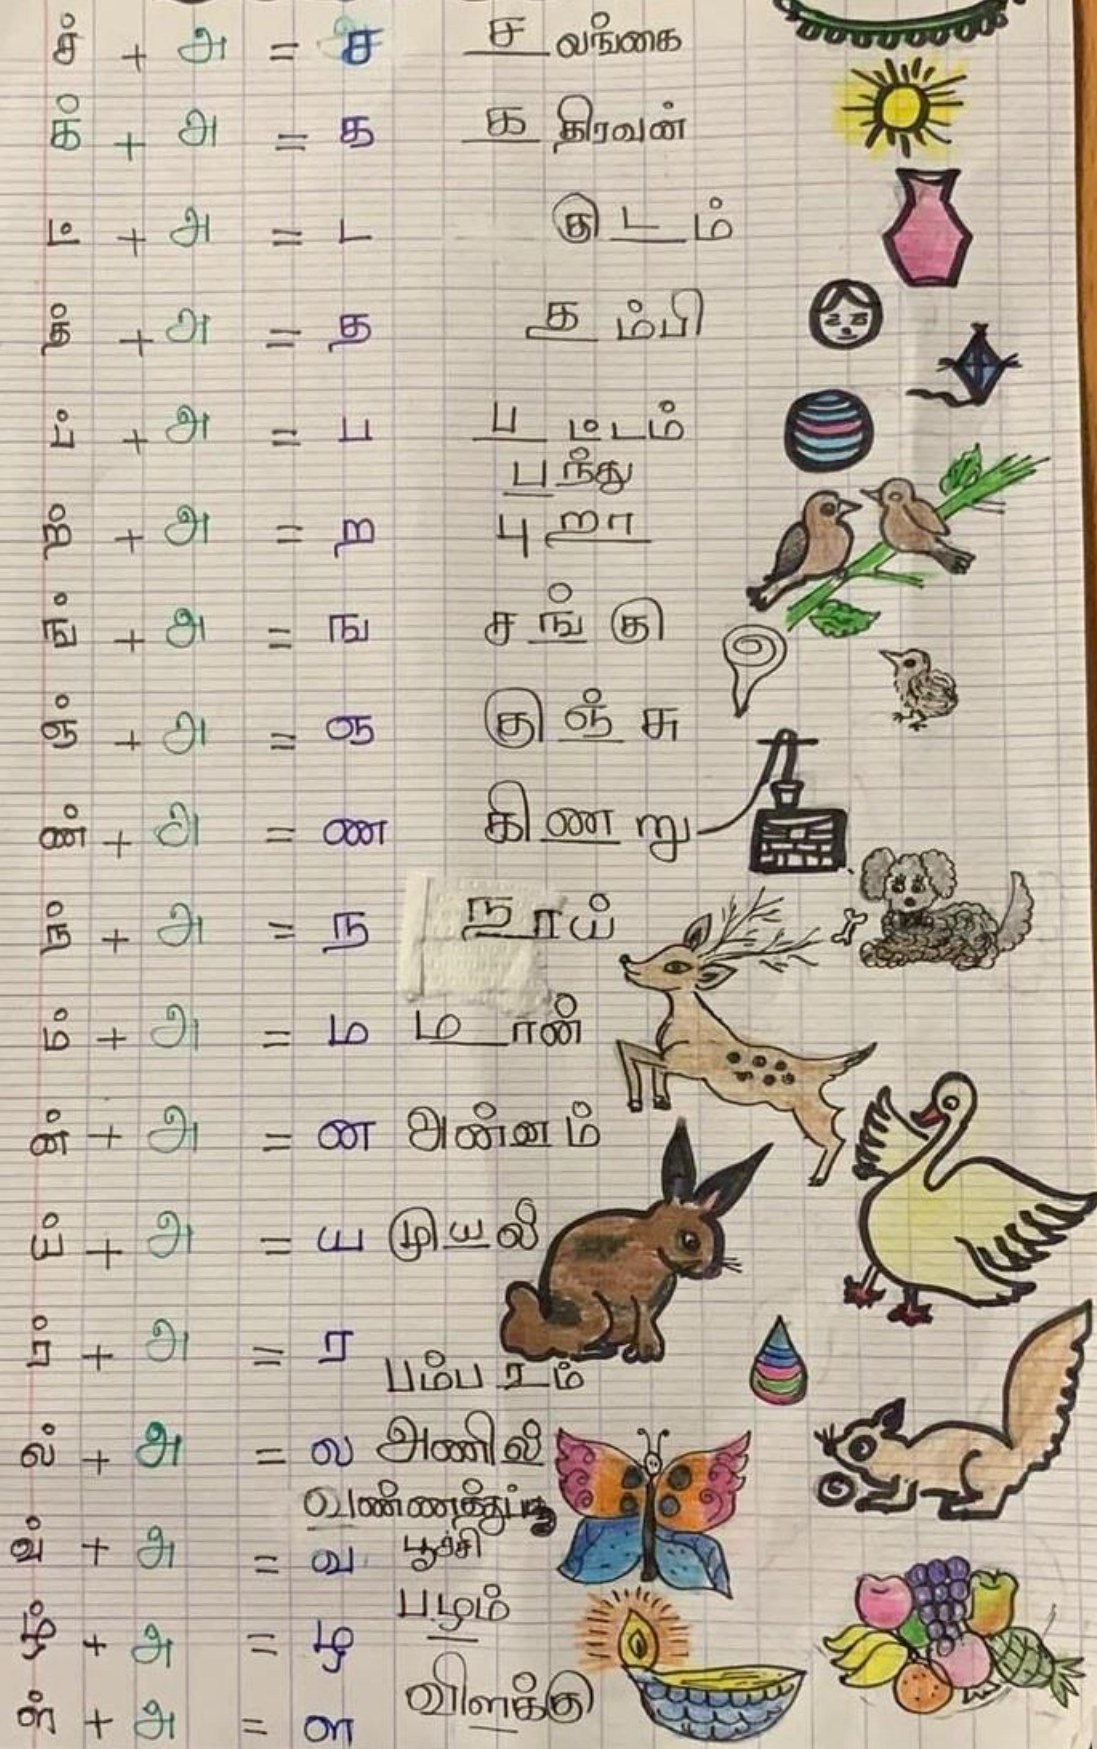 ச் + அ = ச சலங்கை
க் + அ = க கதிரவன்
ட் + அ = ட குடம்
த் + அ = த தம்பி
ப் + அ = ப பட்டம்
பந்து
ற் + அ = ற புறா
ங் + அ = ங சங்கு
ஞ் + அ = ஞ குஞ்சு
ண் + அ = ண கிணறு
ந் + அ = ந நாய்
ம் + அ = ம மான்
ன் + அ = ன அன்னம்
ய் + அ = ய முயல்
ர் + அ = ர பம்பரம்
ல் + அ = ல அணில்
வண்ணத்துப்
வ் + அ = வ பூச்சி
பழம்
ழ் + அ = ழ
ள் + அ = ள விளக்கு